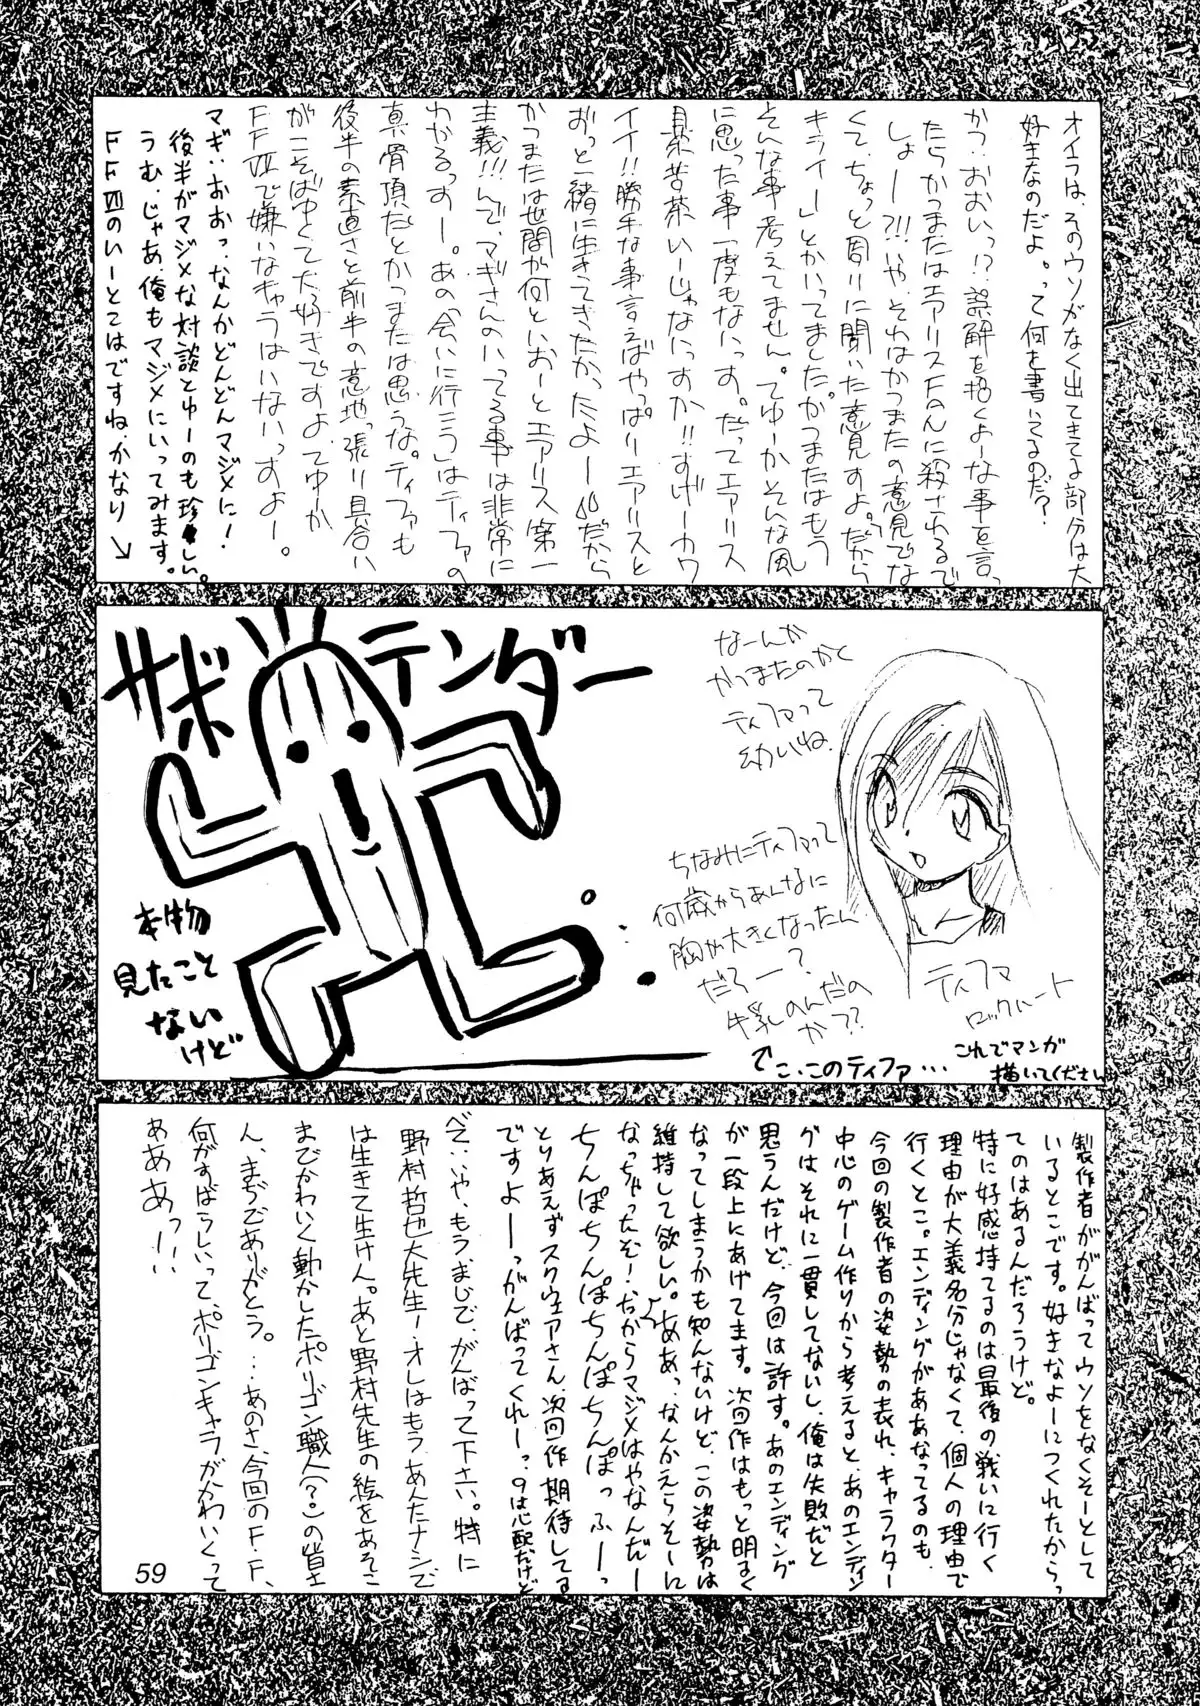 オイラは、そのウソがなく出てきてる部分は大
好きなのだよ。って何を書いてるのだ?
かつ:おおいっ!?誤解を招くよーな事を言っ
たらかつまたはエアリスFanに殺されるで
しょー!?!!いや、それはかつまたの意見でな
くて、ちょっと周りに聞いた意見すよ。だから
キライー」とかいってましたが、かつまたはもう
そんな事考えてません。てゆーかそんな風
に思った事一度もないっす。だってエアリス
見茶苦茶いーじゃないっすか!!すげーカワ
イイ!!勝手な事言えばやっぱりエアリスと
ずっと一緒に生きてきたかったよー だから
かつまたは世間が何といおーとエアリス第一
主義!!!んで、マギさんのいってる事は非常に
わかるっすー。あの「会いに行こう」はティファの
真骨頂だとかつまたは思うな。ティファも
後半の素直さと前半の意地っ張り具合い
がこそばゆくて大好きですよ。てゆーか
FFⅦで嫌いなキャラはいないっすよー。
マギ:おおっ、なんかどんどんマジメに!
後半がマジメな対談とゆーのも珍しい。
うむ、じゃあ、俺もマジメにいってみます。
FFⅦのいーとこはですね、かなり↘
サボテンダー
本物
見たこと
ないけど
なーんか
かつまたのかく
ティファって
幼いね
ちなみにティファって
何歳からあんなに
胸が大きくなったん
だろー?
牛乳のんだの
か??
ティファ
ロックハート
これでマンガ
描いてください
こ、このティファ…
製作者ががんばってウソをなくそーとして
いるとこです。好きなよーにつくれたからっ
てのはあるんだろうけど。
特に好感持てるのは最後の戦いに行く
理由が大義名分じゃなくて、個人の理由で
行くとこ。エンディングがああなってるのも、
今回の製作者の姿勢の表れ、キャラクター
中心のゲーム作りから考えると、あのエンディン
グはそれに一貫してないし、俺は失敗だと
思うんだけど、今回は許す。あのエンディング
が一段上にあげてます。次回作はもっと明るく
なってしまうかも知んないけど、この姿勢は
維持して欲しい。ああっ、なんかえらそーに
なっちゃったぞ!だからマジメはやなんだー
ちんぽちんぽちんぽちんぽっふーっ
とりあえずスクウェアさん、次回作期待してる
ですよーーっがんばってくれーっ。9は心配だけど
べ:いや、もうまじで、がんばって下さい。特に
野村哲也大先生ー!オレはもうあんたナシで
は生きて生けん。あと野村先生の絵をあそこ
までかわいく動かしたポリゴン職人(?)の皆さ
ん、まぢでありがとう。…あのさ、今回のF.F、
何がすばらしいって、ポリゴンキャラがかわいくって
ああああっ!!
59